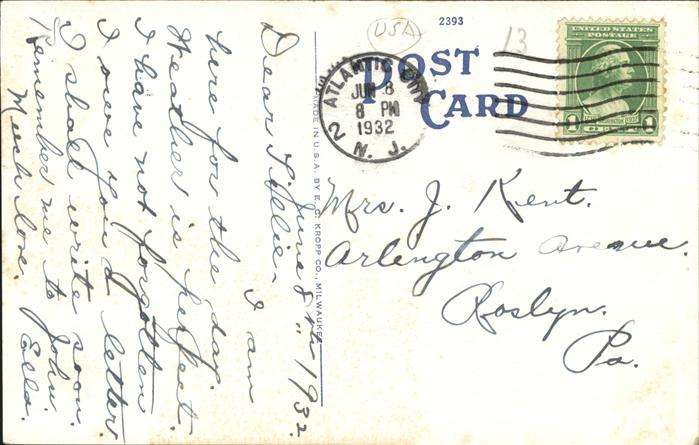 USA
2393
13
POST
CARD
UNITED STATES
POSTAGE
1 1
CENT
ATLANTIC CITY
JUN 8
8 PM
1932
2 N. J.
MADE IN U.S.A. BY E. C. KROPP CO., MILWAUKEE
June 8th 1932.
Dear Tillie - I am
here for the day.
Weather is perfect.
I have not forgotten
I owe you a letter.
I shall write soon.
Remember me to John.
Much love. Ella.
Mrs. J. Kent.
Arlington Avenue.
Roslyn.
Pa.